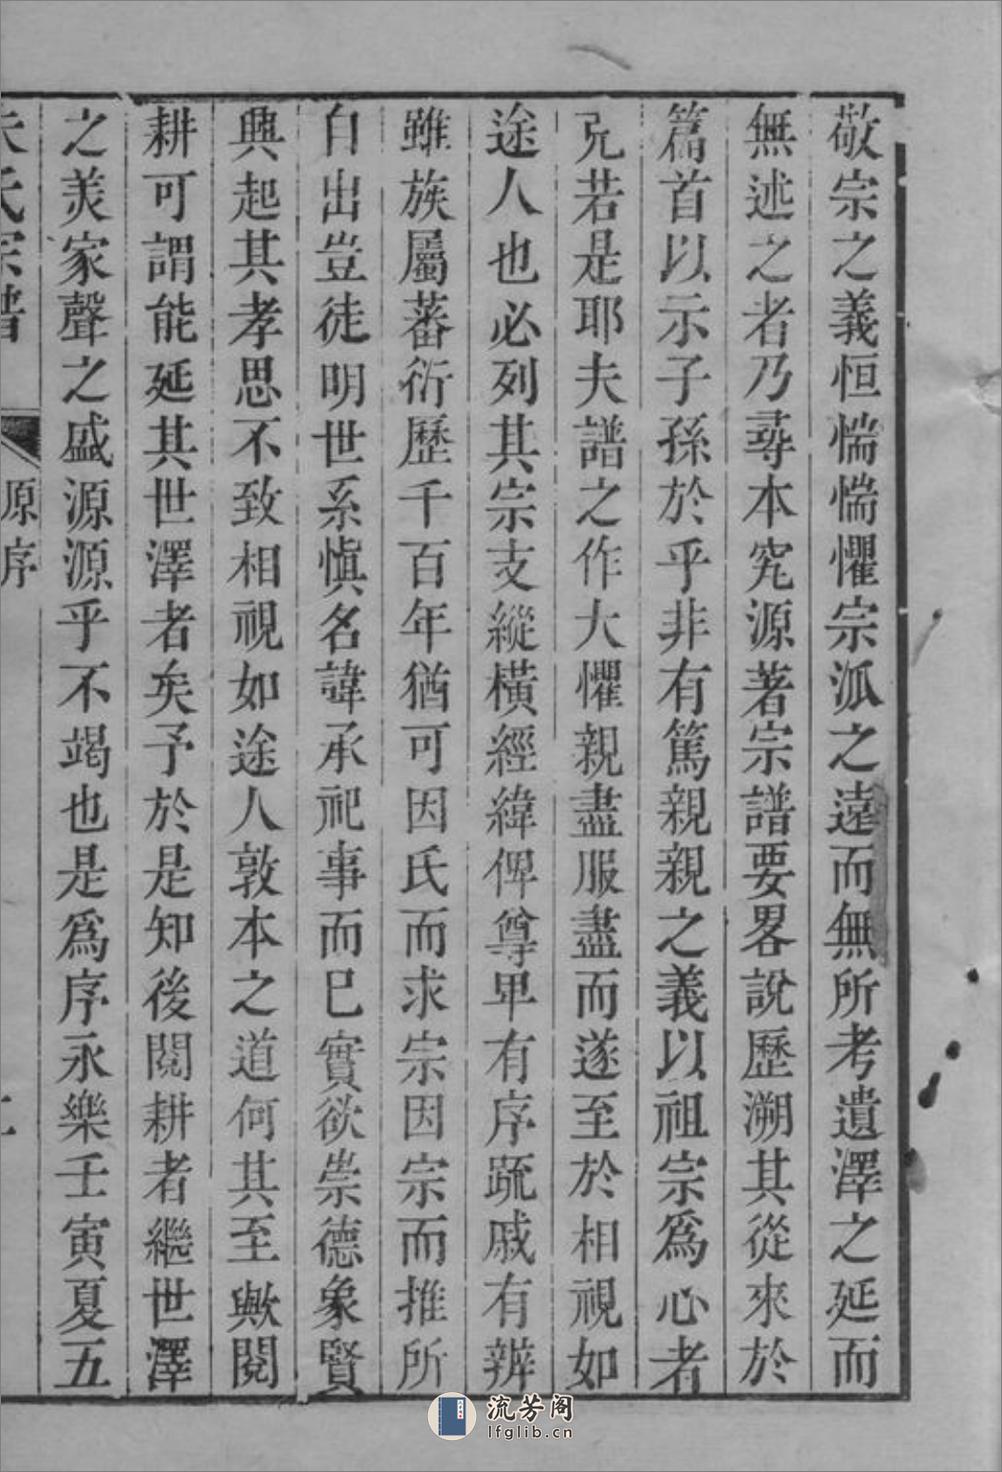 敬宗之義恒惴惴懼宗泒之遠而無所考遺澤之延而
無述之者乃尋本究源著宗譜要畧說歷溯其從來於
篇首以示子孫於乎非有篤親親之義以祖宗爲心者
克若是耶夫譜之作大懼親盡服盡而遂至於相視如
途人也必列其宗支縱橫經緯俾尊卑有序䟽戚有辨
雖族屬蕃衍歷千百年猶可因氏而求宗因宗而推所
自出豈徒明世系愼名諱承祀事而巳實欲崇德象賢
興起其孝思不致相視如途人敦本之道何其至歟閱
耕可謂能延其世澤者矣予於是知後閱耕者繼世澤
之美家聲之盛源源乎不竭也是爲序永樂壬寅夏五
氏宗譜 原序
流芳阁
lfglib.cn